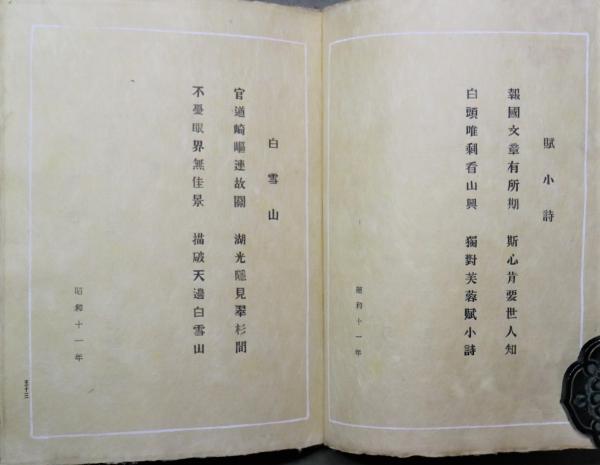 賦小詩
報國文章有所期　斯心肯要世人知
白頭唯剩看山興　獨對芙蓉賦小詩
昭和十一年
白雪山
官道崎嶇連故關　湖光隱見翠杉間
不憂眼界無佳景　描破天邊白雪山
昭和十一年
五十三